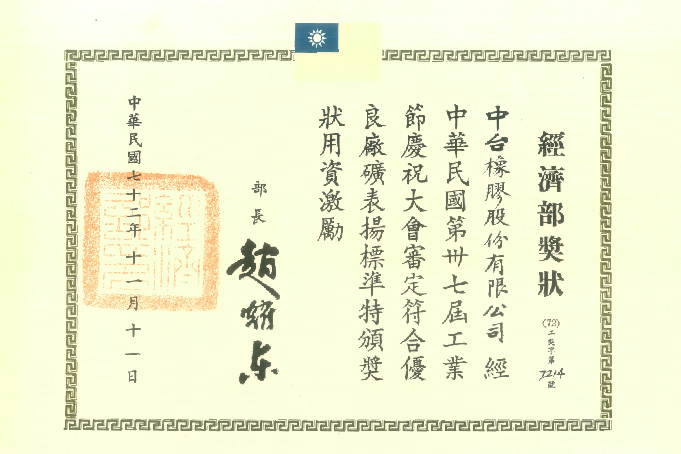 經濟部獎狀
(72)工獎字第7214號
中台橡膠股份有限公司 經
中華民國第卅七屆工業
節慶祝大會審定符合優
良廠礦表揚標準特頒獎
狀用資激勵
部長
趙耀东
中華民國七十二年十一月十一日